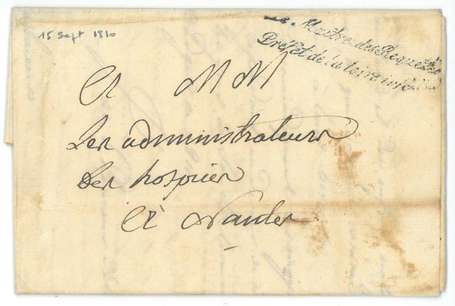 15 Sept 1810
Le Maitre des Requêtes
Préfet de la Loire inf.re
A MM
Les administrateurs
Des hospices
A Nantes